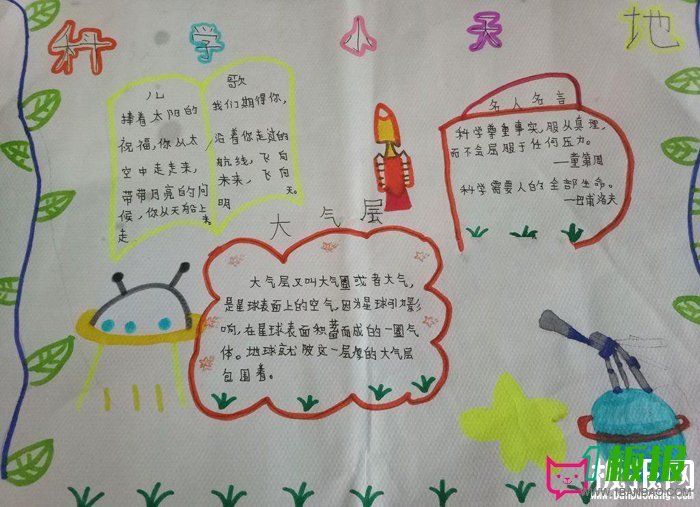 科学小天地
儿
捧着太阳的
祝福,你从太
空中走走来,
带带月亮的问
候,你从天船上来
走
歌
我们期得你,
沿着你走过的
航线,飞向
未来,飞向
明天。
名人名言
科学尊重事实,服从真理,
而不会屈服于任何压力。
—童第周
科学需要人的全部生命。
—巴甫洛夫
大气层
大气层又叫大气圈或者大气,
是星球表面上的空气,因为星球引力影
响,在星球表面积蓄而成的一圈气
体。地球就被这一层厚的大气层
包围着。
板报